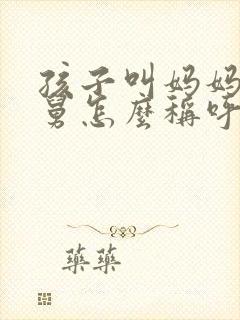 孩子叫妈妈
舅怎麽稱呼
藥藥